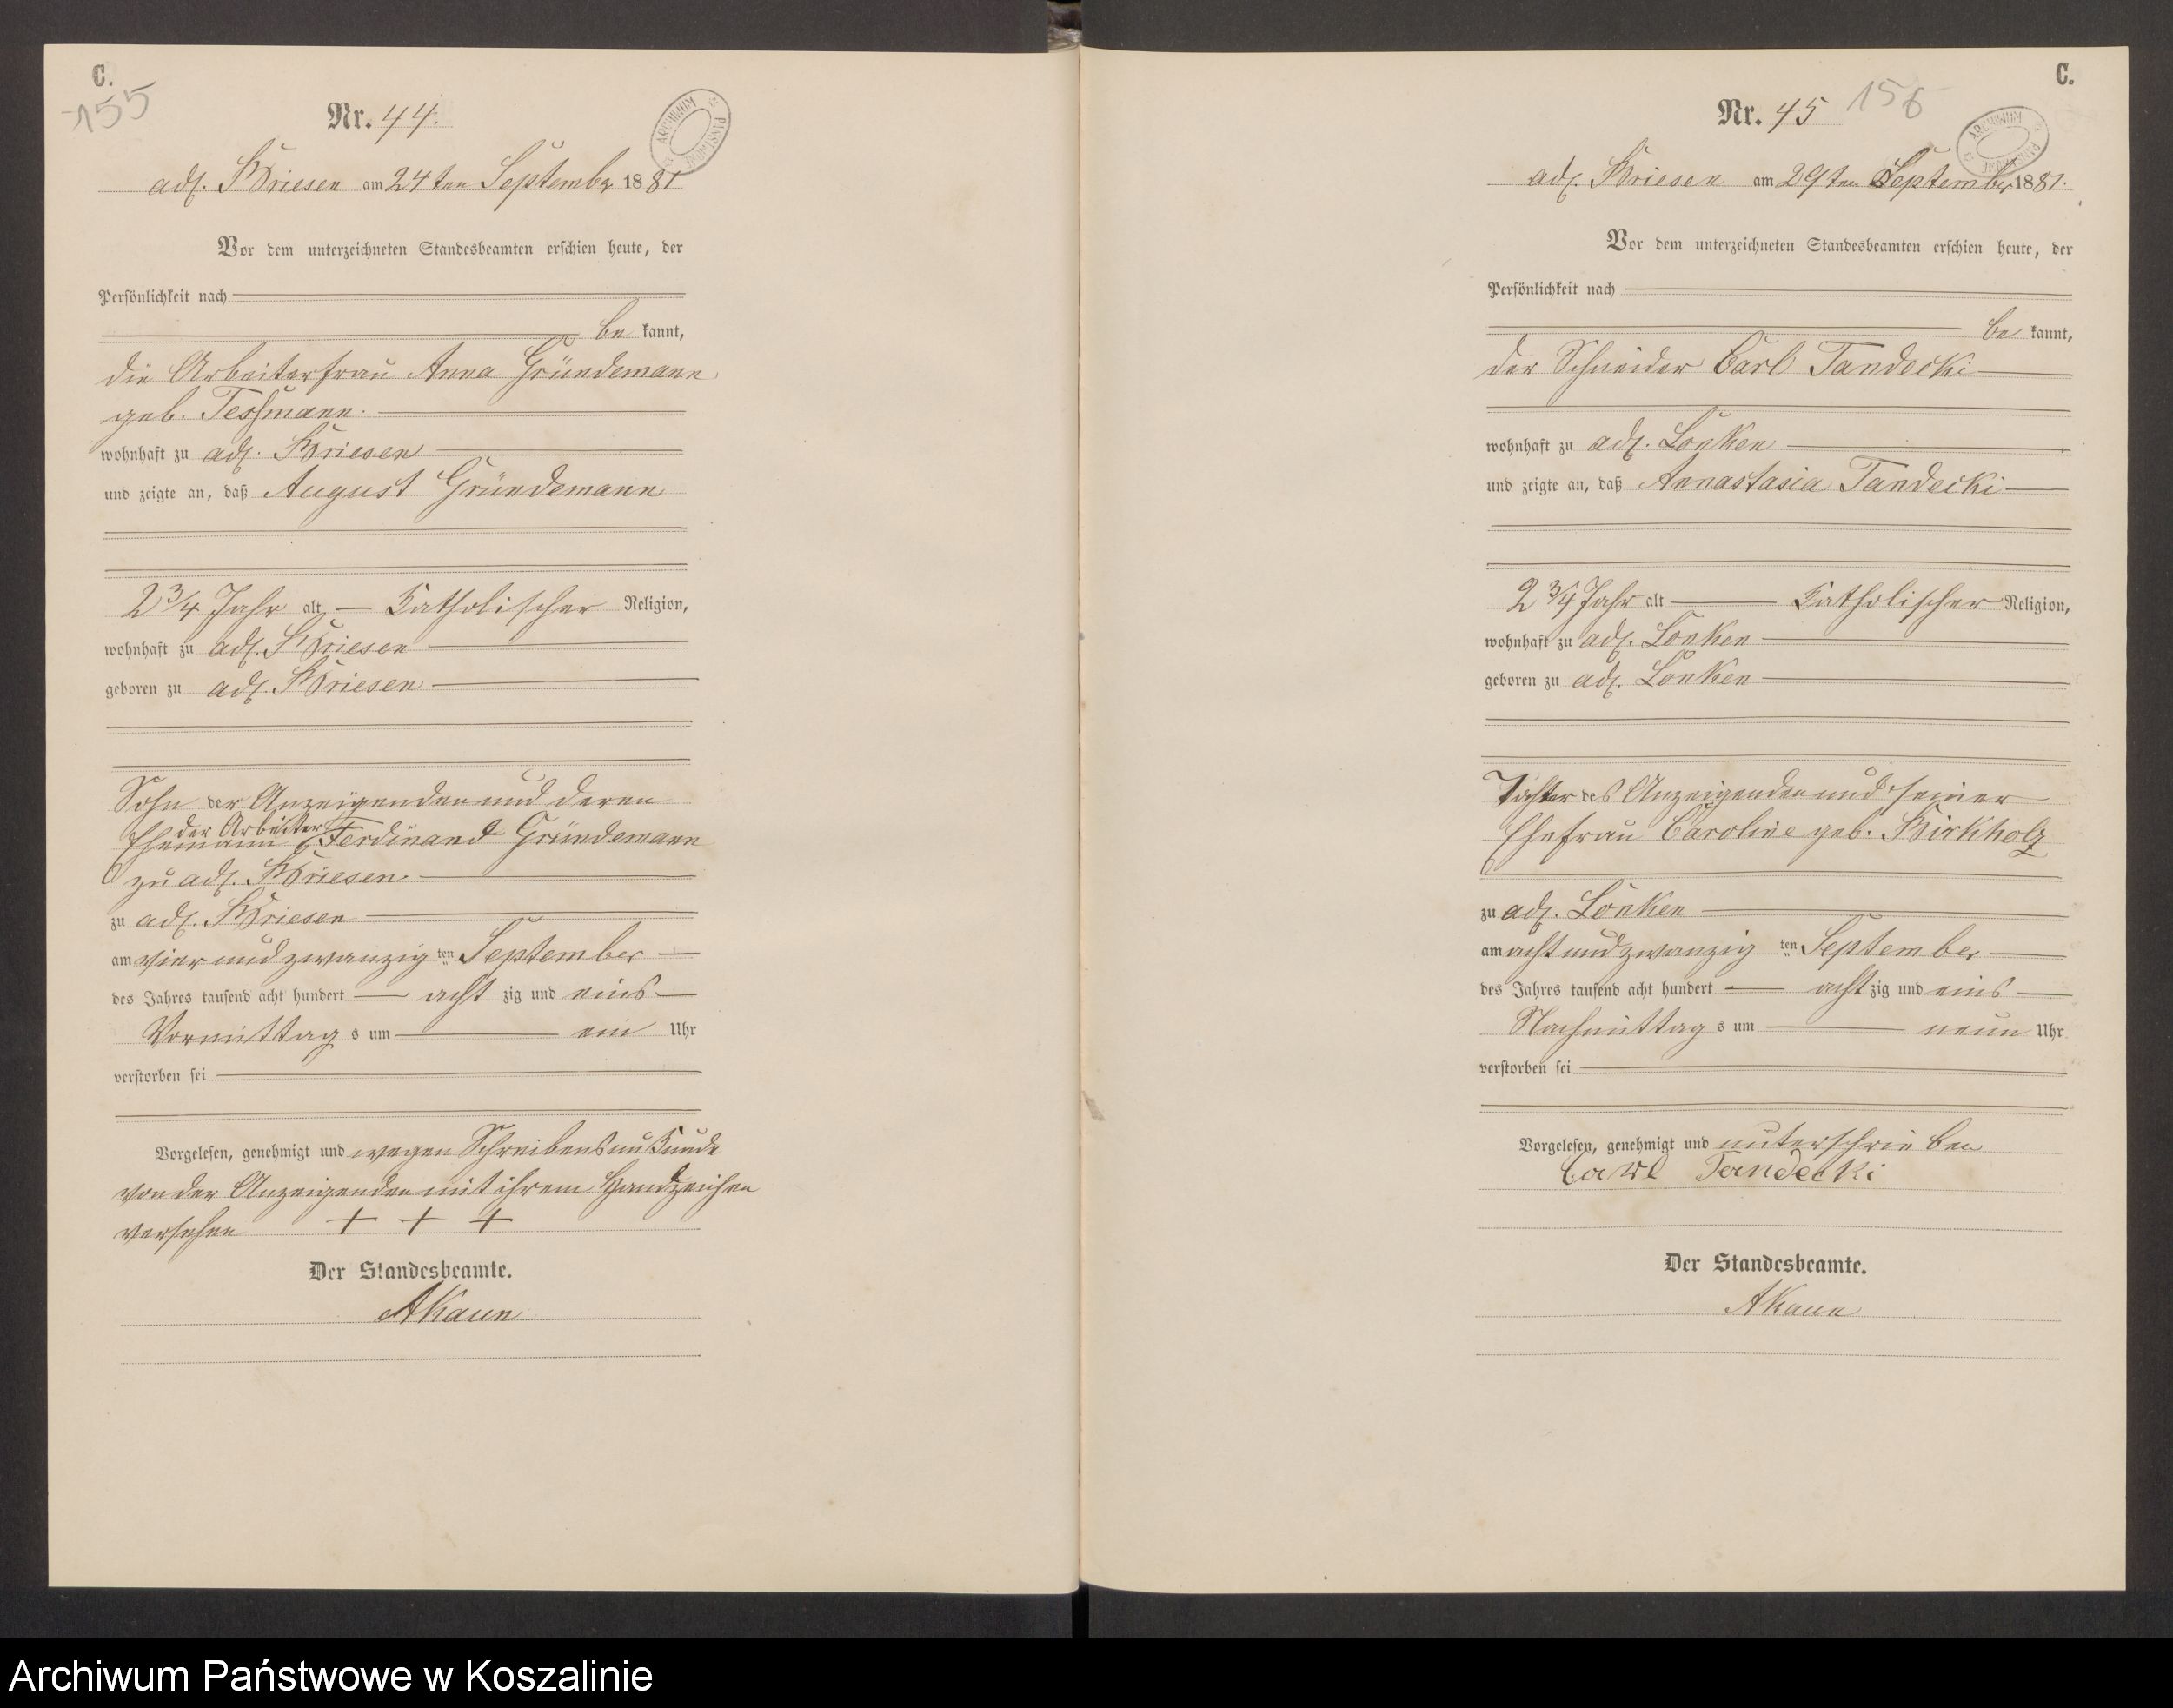 C.
155
Nr. 44.
ARCHIWUM PAŃSTWOWE
adl. Briesen am 24 ten September 1881
Vor dem unterzeichneten Standesbeamten erschien heute, der
Persönlichkeit nach
be kannt,
die Arbeiterfrau Anna Gründemann
geb. Tessmann.
wohnhaft zu adl. Briesen
und zeigte an, daß August Gründemann
2 3/4 Jahr alt, Katholischer Religion,
wohnhaft zu adl. Briesen
geboren zu adl. Briesen
Sohn der Anzeigenden und deren
der Arbeiter
Ehemann Ferdinand Gründemann
zu adl. Briesen.
zu adl. Briesen
am vier und zwanzig ten September
des Jahres tausend acht hundert acht zig und eins
Vormittag s um ein Uhr
verstorben sei
Vorgelesen, genehmigt und wegen Schreibensunkunde
von der Anzeigenden mit ihrem Handzeichen
versehen + + +
Der Standesbeamte.
AKaun
C.
156
Nr. 45
ARCHIWUM PAŃSTWOWE
adl. Briesen am 29 ten September 1881.
Vor dem unterzeichneten Standesbeamten erschien heute, der
Persönlichkeit nach
be kannt,
der Schneider Carl Tandecki
wohnhaft zu adl. Lonken
und zeigte an, daß Annastasia Tandecki
2 3/4 Jahr alt Katholischer Religion,
wohnhaft zu adl. Lonken
geboren zu adl. Lonken
Tochter des Anzeigenden und seiner
Ehefrau Caroline geb. Birkholz
zu adl. Lonken
am acht und zwanzig ten September
des Jahres tausend acht hundert acht zig und eins
Nachmittag s um neun Uhr
verstorben sei
Vorgelesen, genehmigt und unterschrieben
Carl Tandecki
Der Standesbeamte.
AKaun
Archiwum Państwowe w Koszalinie